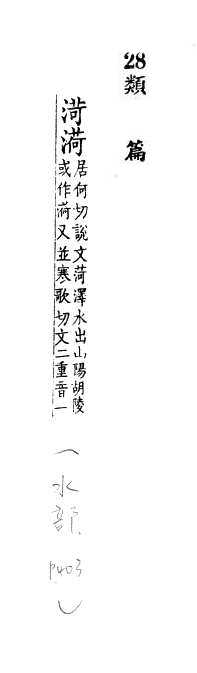 28類篇
菏㳸居何切說文菏澤水出山陽胡陵
或作荷又並寒歌切文二重音一
(水部 P403)